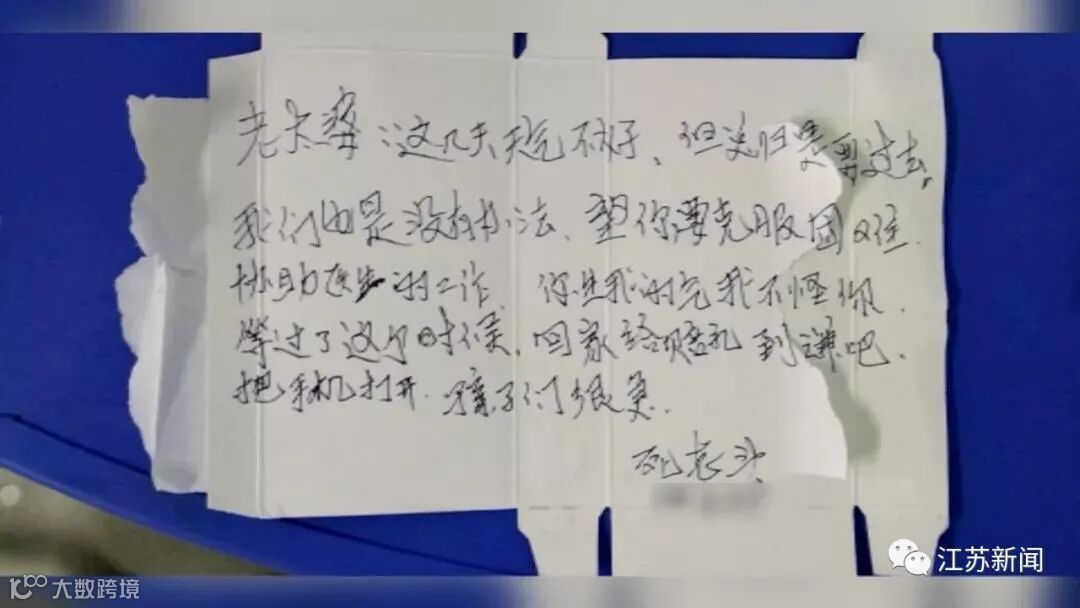 老太婆：这几天天气不好、但总归是要过去。
我们也是没有办法、望你要克服困难.
协助医生的工作. 你生我的气我不怪你.
等过了这个时候. 回家给你赔礼到谦吧.
把手机打开. 孩子们很急.
死老头
江苏新闻
大数跨境